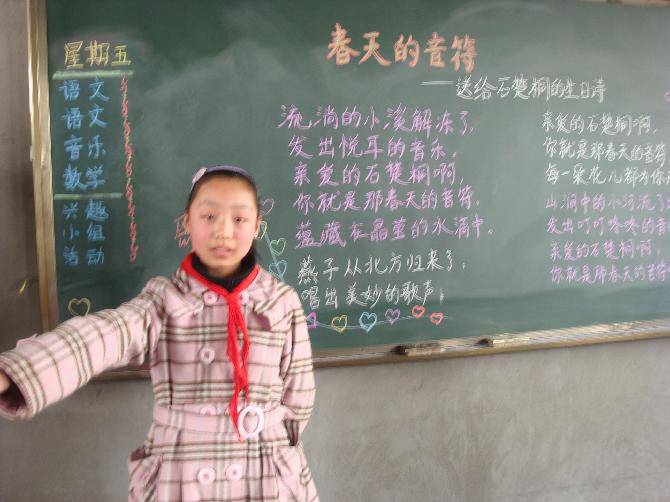 星期五
语文
语文
音乐
数学
兴趣
小组
活动
春天的音符
——送给石楚桐的生日诗
流淌的小溪解冻了，
发出悦耳的音乐，
亲爱的石楚桐啊，
你就是那春天的音符，
蕴藏在晶莹的水滴中。
燕子从北方归来了，
唱出美妙的歌声；
亲爱的石楚桐啊，
你就是那春天的音符
每一朵花儿都为你
山涧中的小河流了
发出叮叮咚咚的音
亲爱的石楚桐啊，
你就是那春天的音符